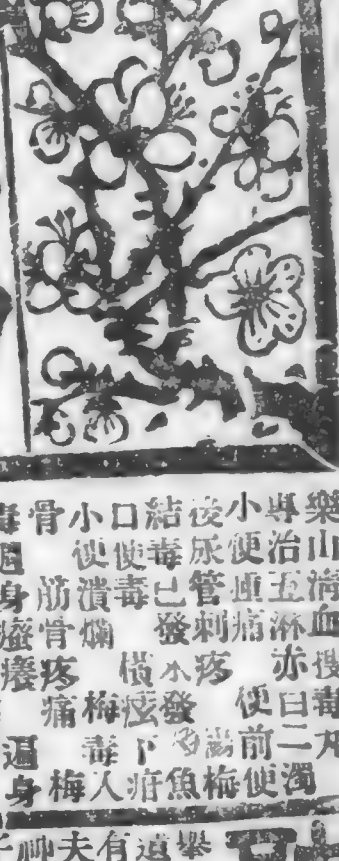 樂山清血搜毒丸
專治五淋赤白二濁
小便痛 便前便
後尿管刺疼 梅
結毒已發 未發 魚
口便毒 橫痃下疳
小便潰爛 梅毒入
骨 筋骨疼痛 梅
毒遍身癢 遍身
舉
這
有
夫
帥